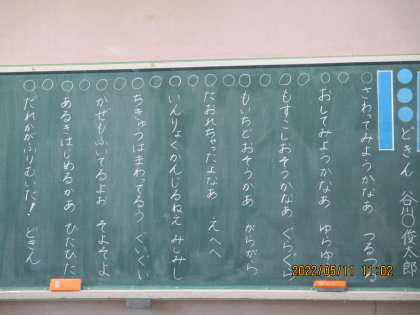 どきん 谷川俊太郎
さわってみようかなあ つるつる
おしてみようかなあ ゆらゆら
もすこしおそうかなあ ぐらぐら
もいちどおそうかあ がらがら
たおれちゃったよなあ えへへ
いんりょくかんじるねえ みしみし
ちきゅうはまわってるう ぐいぐい
かぜもふいてるよお そよそよ
あるきはじめるかあ ひたひた
だれかがふりむいた! どきん
2022/05/11 11:02